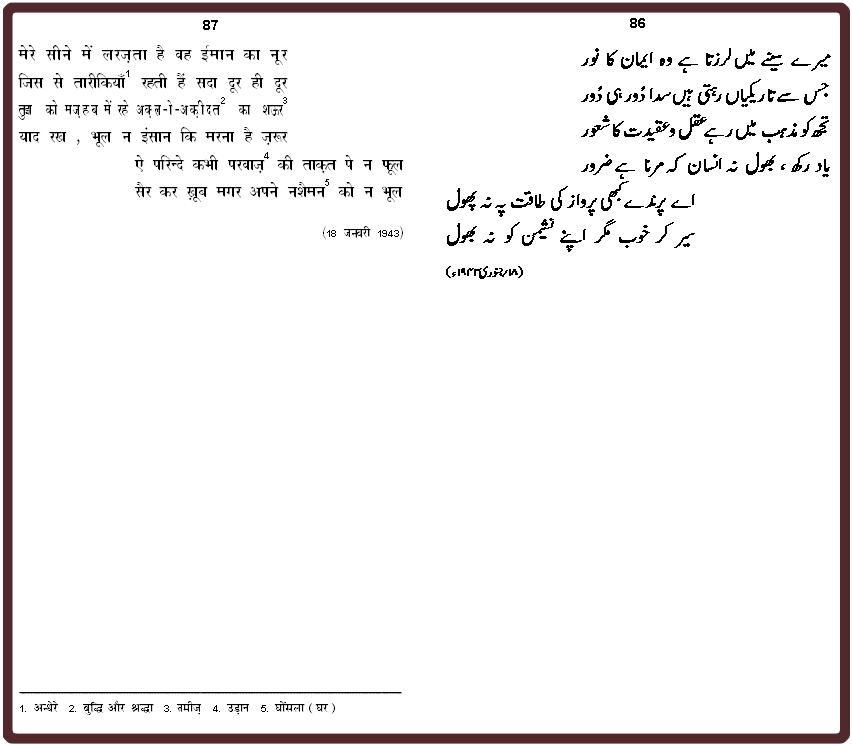 87
मेरे सीने में लरज़ता है वह ईमान का नूर
जिस से तारीकियाँ1 रहती हैं सदा दूर ही दूर
तुझ को मज़हब में रहे अक़्ल-ो-अक़ीदत2 का शऊर3
याद रख , भूल न इंसान कि मरना है ज़रूर
ऐ परिन्दे कभी परवाज़4 की ताक़त पे न फूल
सैर कर ख़ूब मगर अपने नशैमन5 को न भूल
(18 जनवरी 1943)
1. अन्धेरे 2. बुद्धि और श्रद्धा 3. तमीज़ 4. उड़ान 5. घोंसला ( घर )
86
میرے سینے میں لرزتا ہے وہ ایمان کا نور
جس سے تاریکیاں رہتی ہیں سدا دُور ہی دُور
تجھ کو مذہب میں رہے عقل و عقیدت کا شعور
یاد رکھ ، بھول نہ انسان کہ مرنا ہے ضرور
اے پرندے کبھی پرواز کی طاقت پہ نہ پھول
سیر کر خوب مگر اپنے نشیمن کو نہ بھول
(۱۸؍جنوری ۱۹۴۳ء)